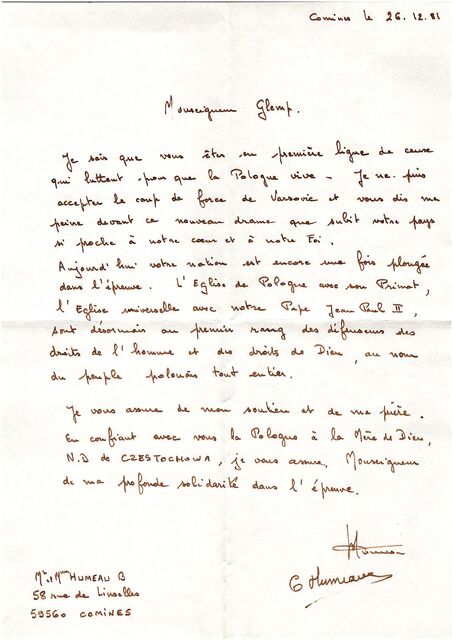 Comines le 26.12.81
Monseigneur Glemp.
Je sais que vous êtes en première ligne de ceux
qui luttent pour que la Pologne vive. Je ne puis
accepter le coup de force de Varsovie et vous dis ma
peine devant ce nouveau drame que subit votre pays
si proche à notre cœur et à notre Foi.
Aujourd'hui votre nation est encore une fois plongée
dans l'épreuve. L'Eglise de Pologne avec son Primat,
l'Eglise universelle avec notre Pape Jean Paul II,
sont désormais au premier rang des défenseurs des
droits de l'homme et des droits de Dieu, au nom
du peuple polonais tout entier.
Je vous assure de mon soutien et de ma prière.
En confiant avec vous la Pologne à la Mère de Dieu,
N.D de CZESTOCHOWA, je vous assure, Monseigneur
de ma profonde solidarité dans l'épreuve.
Humeau
Mr et Mme HUMEAU B
58 rue de Linselles
59560 COMINES